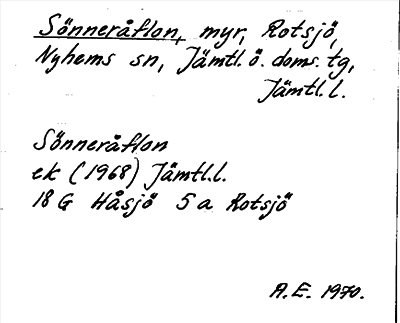 Sönneråflon, myr, Rotsjö,
Nyhems sn, Jämtl. ö. doms. tg,
Jämtl. l.
Sönneråflon
ek (1968) Jämtl.l.
18 G Håsjö 5 a Rotsjö
A.E. 1970.